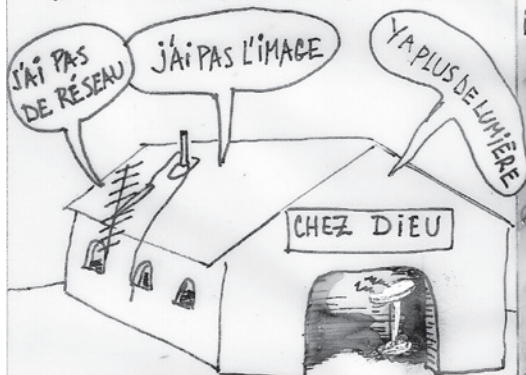 J'AI PAS
DE RÉSEAU
J'AI PAS L'IMAGE
Y A PLUS DE LUMIÈRE
CHEZ DIEU